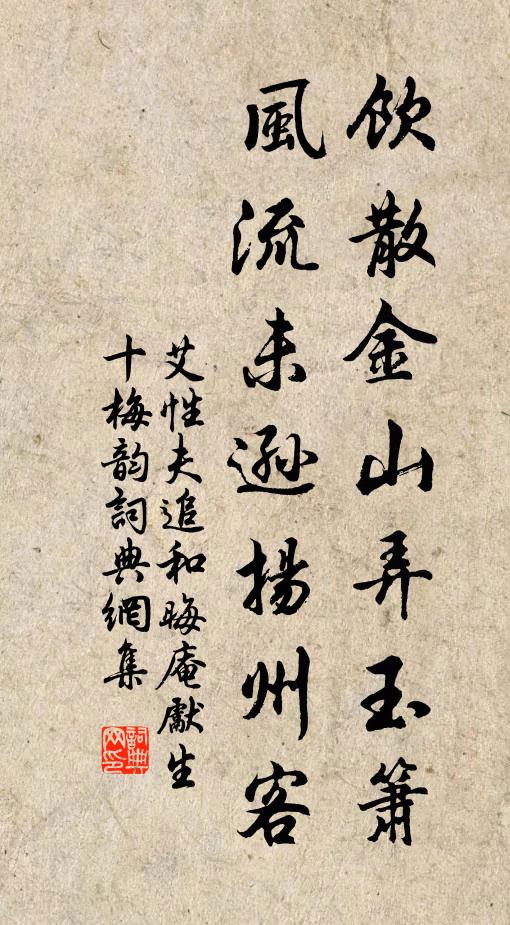 飲散金山弄玉簫
風流未遜揚州客
艾性夫追和晦庵獻生
十梅韵詞典網集
詞典网印